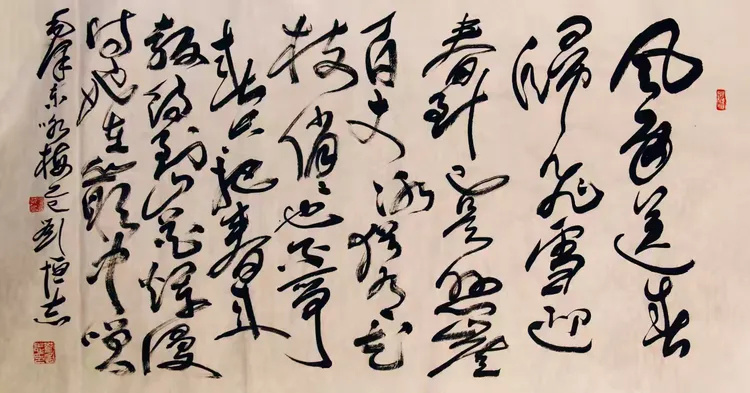 风雨送春
归飞雪迎
春到已是悬崖
百丈冰犹有花
枝俏々也不争
春只把春来
报待到山花烂漫
时她在丛中笑
毛泽东咏梅 刘恒志